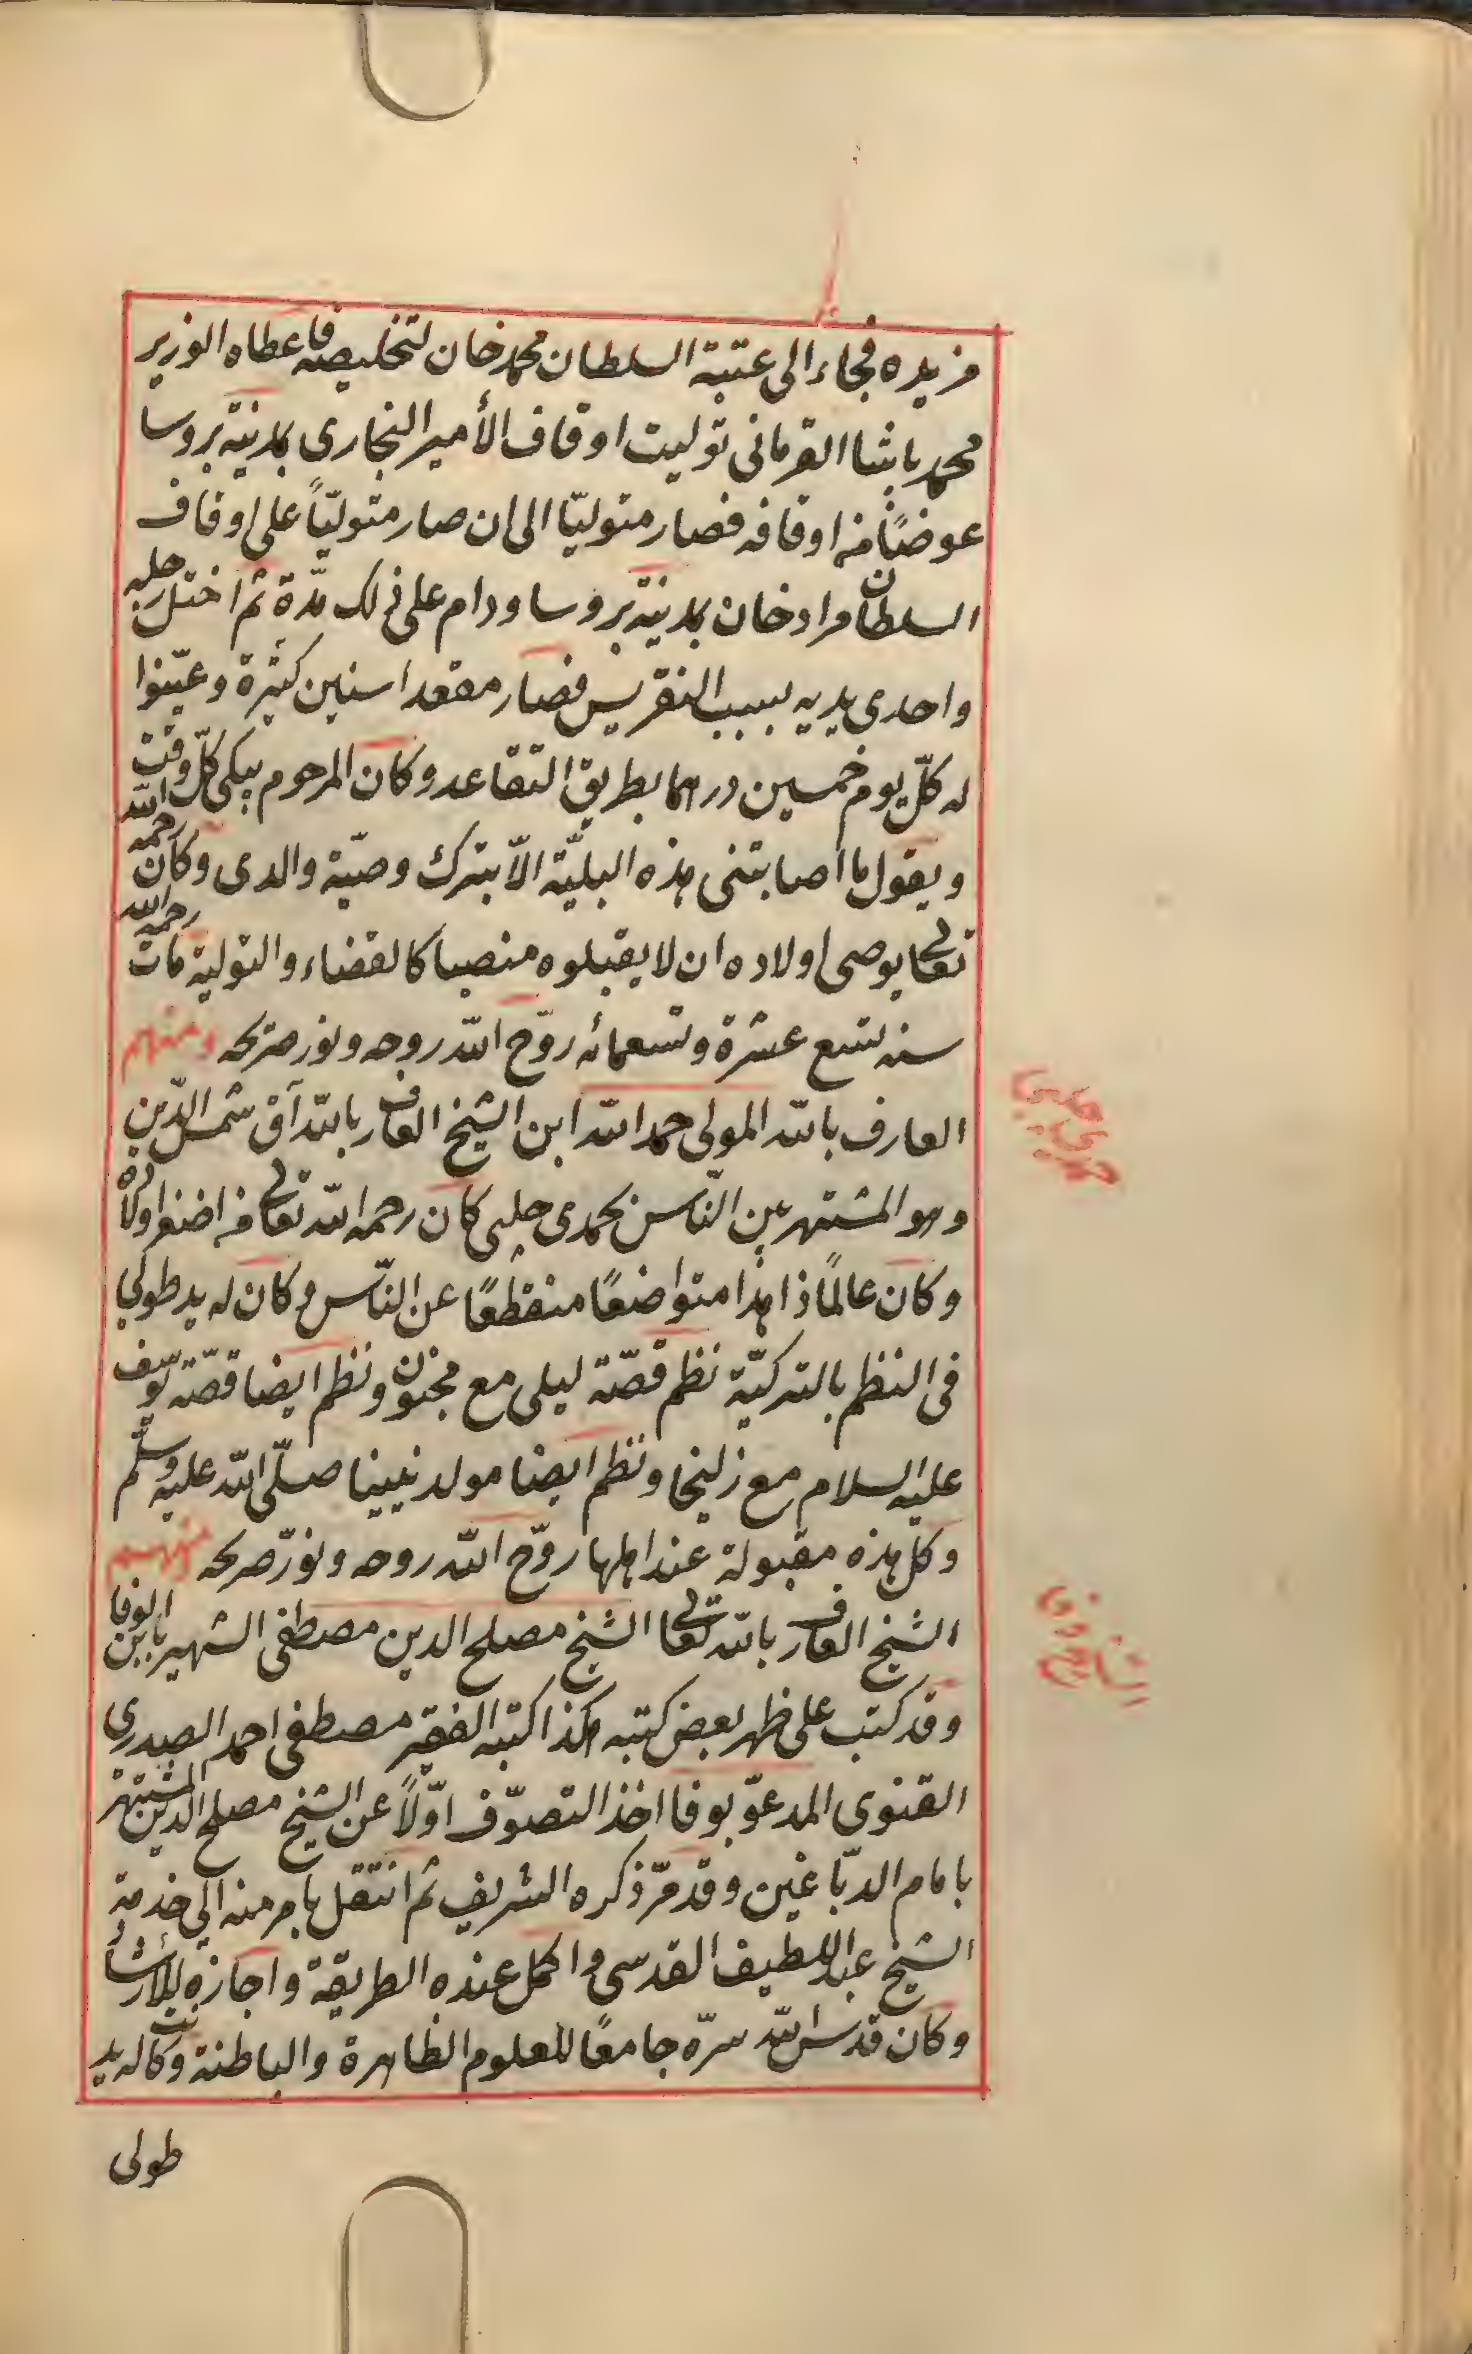 من يده فجاء الى عتبة السلطان محمد خان لتخليصه فاعطاه الوزير
محمد باشا القرمانى توليت اوقاف الأمير البخارى بمدينة بروسا
عوضًا من اوقافه فصار متوليّا الى ان صار متوليّاً على اوقاف
السلطان مراد خان بمدينة بروسا ودام على ذلك مدّة ثم اختل رجليه
واحدى يديه بسبب النقريس فصار مقعدا سنين كثيرة وعيّنوا
له كلّ يوم خمسين درهما بطريق التقاعد وكان المرحوم يبكى كلّ وقت
ويقول ما اصابتنى هذه البليّة الّا بترك وصيّة والدى وكان رحمه الله
تعالى يوصى اولاده ان لا يقبلوه منصبا كالقضاء والتولية مات رحمه الله
سنه تسع عشرة وتسعمائه روّح الله روحه ونور ضريحه ومنهم
العارف بالله المولى حمد الله ابن الشيخ العارف بالله آق شمس الدّين
وهو المشتهر بين النّاس بحمدى چلبى كان رحمه الله تعالى من اضغر اولاده
وكان عالمًا زاهدا متواضعًا منقطعًا عن النّاس وكان له يد طولى
فى النظم بالتركيّة نظم قصّة ليلى مع مجنون ونظم ايضا قصّة يوسف
عليه السلام مع زليخا ونظم ايضا مولد نبينا صلّى الله عليه وسلّم
وكل هذه مقبولة عند اهلها روّح الله روحه ونوّر ضريحه ومنهم
الشيخ العارف بالله تعالى الشيخ مصلح الدين مصطفى الشهير بابن الوفا
وقد كتب على ظهر بعض كتبه هكذا كتبه الفقير مصطفى احمد الصدرى
القنوى المدعوّ بوفا اخذ التصوّف اوّلاً عن الشيخ مصلح الدين المشتهر
بامام الدبّاغين وقد مرّ ذكره الشريف ثم انتقل بامر منه الى خدمة
الشيخ عبد اللطيف القدسى واكمل عنده الطريقة واجازه للأرشاد
وكان قدس الله سرّه جامعًا للعلوم الظاهرة والباطنة وكانت له يد
طولى
حمدى چلبى
الشيخ وفا